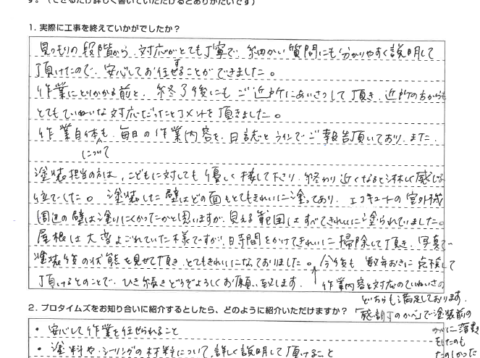 す。（できるだけ詳しく書いていただけるとありがたいです）
1. 実際に工事を終えていかがでしたか？
見つもりの段階から、対応がとても丁寧で、細かい質問にも分かりやすく説明して
頂けたので、安心してお任せすることができました。
作業にとりかかる前と、終了後にもご近所にあいさつして頂き、近所の方からも
とてもていねいな対応だったとコメントを頂きました。
作業自体も、毎日の作業内容を、日誌とラインでご報告頂いており、また、
について
塗装担当の方は、こどもに対しても優しく接して下さり、終わり近くなると淋しく感じる
ほどでした。塗装した壁はどの面もとてもきれいに塗ってあり、エコキュートの室外機
周辺の壁は塗りにくかったかと思いますが、見える範囲はすべてきれいに塗られていました。
屋根は大変よごれていた様ですが、日時間をかけてきれいに掃除して頂き、写真で
塗装後の状態を見せて頂き、とてもきれいになっておりました。今後も 数年おきに点検して
頂けるとのことで、ひき続きどうぞよろしくお願い致します。
作業内容も対応のていねいさの
どちらも満足しております。
2. プロタイムズをお知り合いに紹介するとしたら、どのように紹介いただけますか？
・安心して作業を任せられること
・塗料やシーリングの材料について、詳しく説明して頂けること
塗装前の
たのしかった